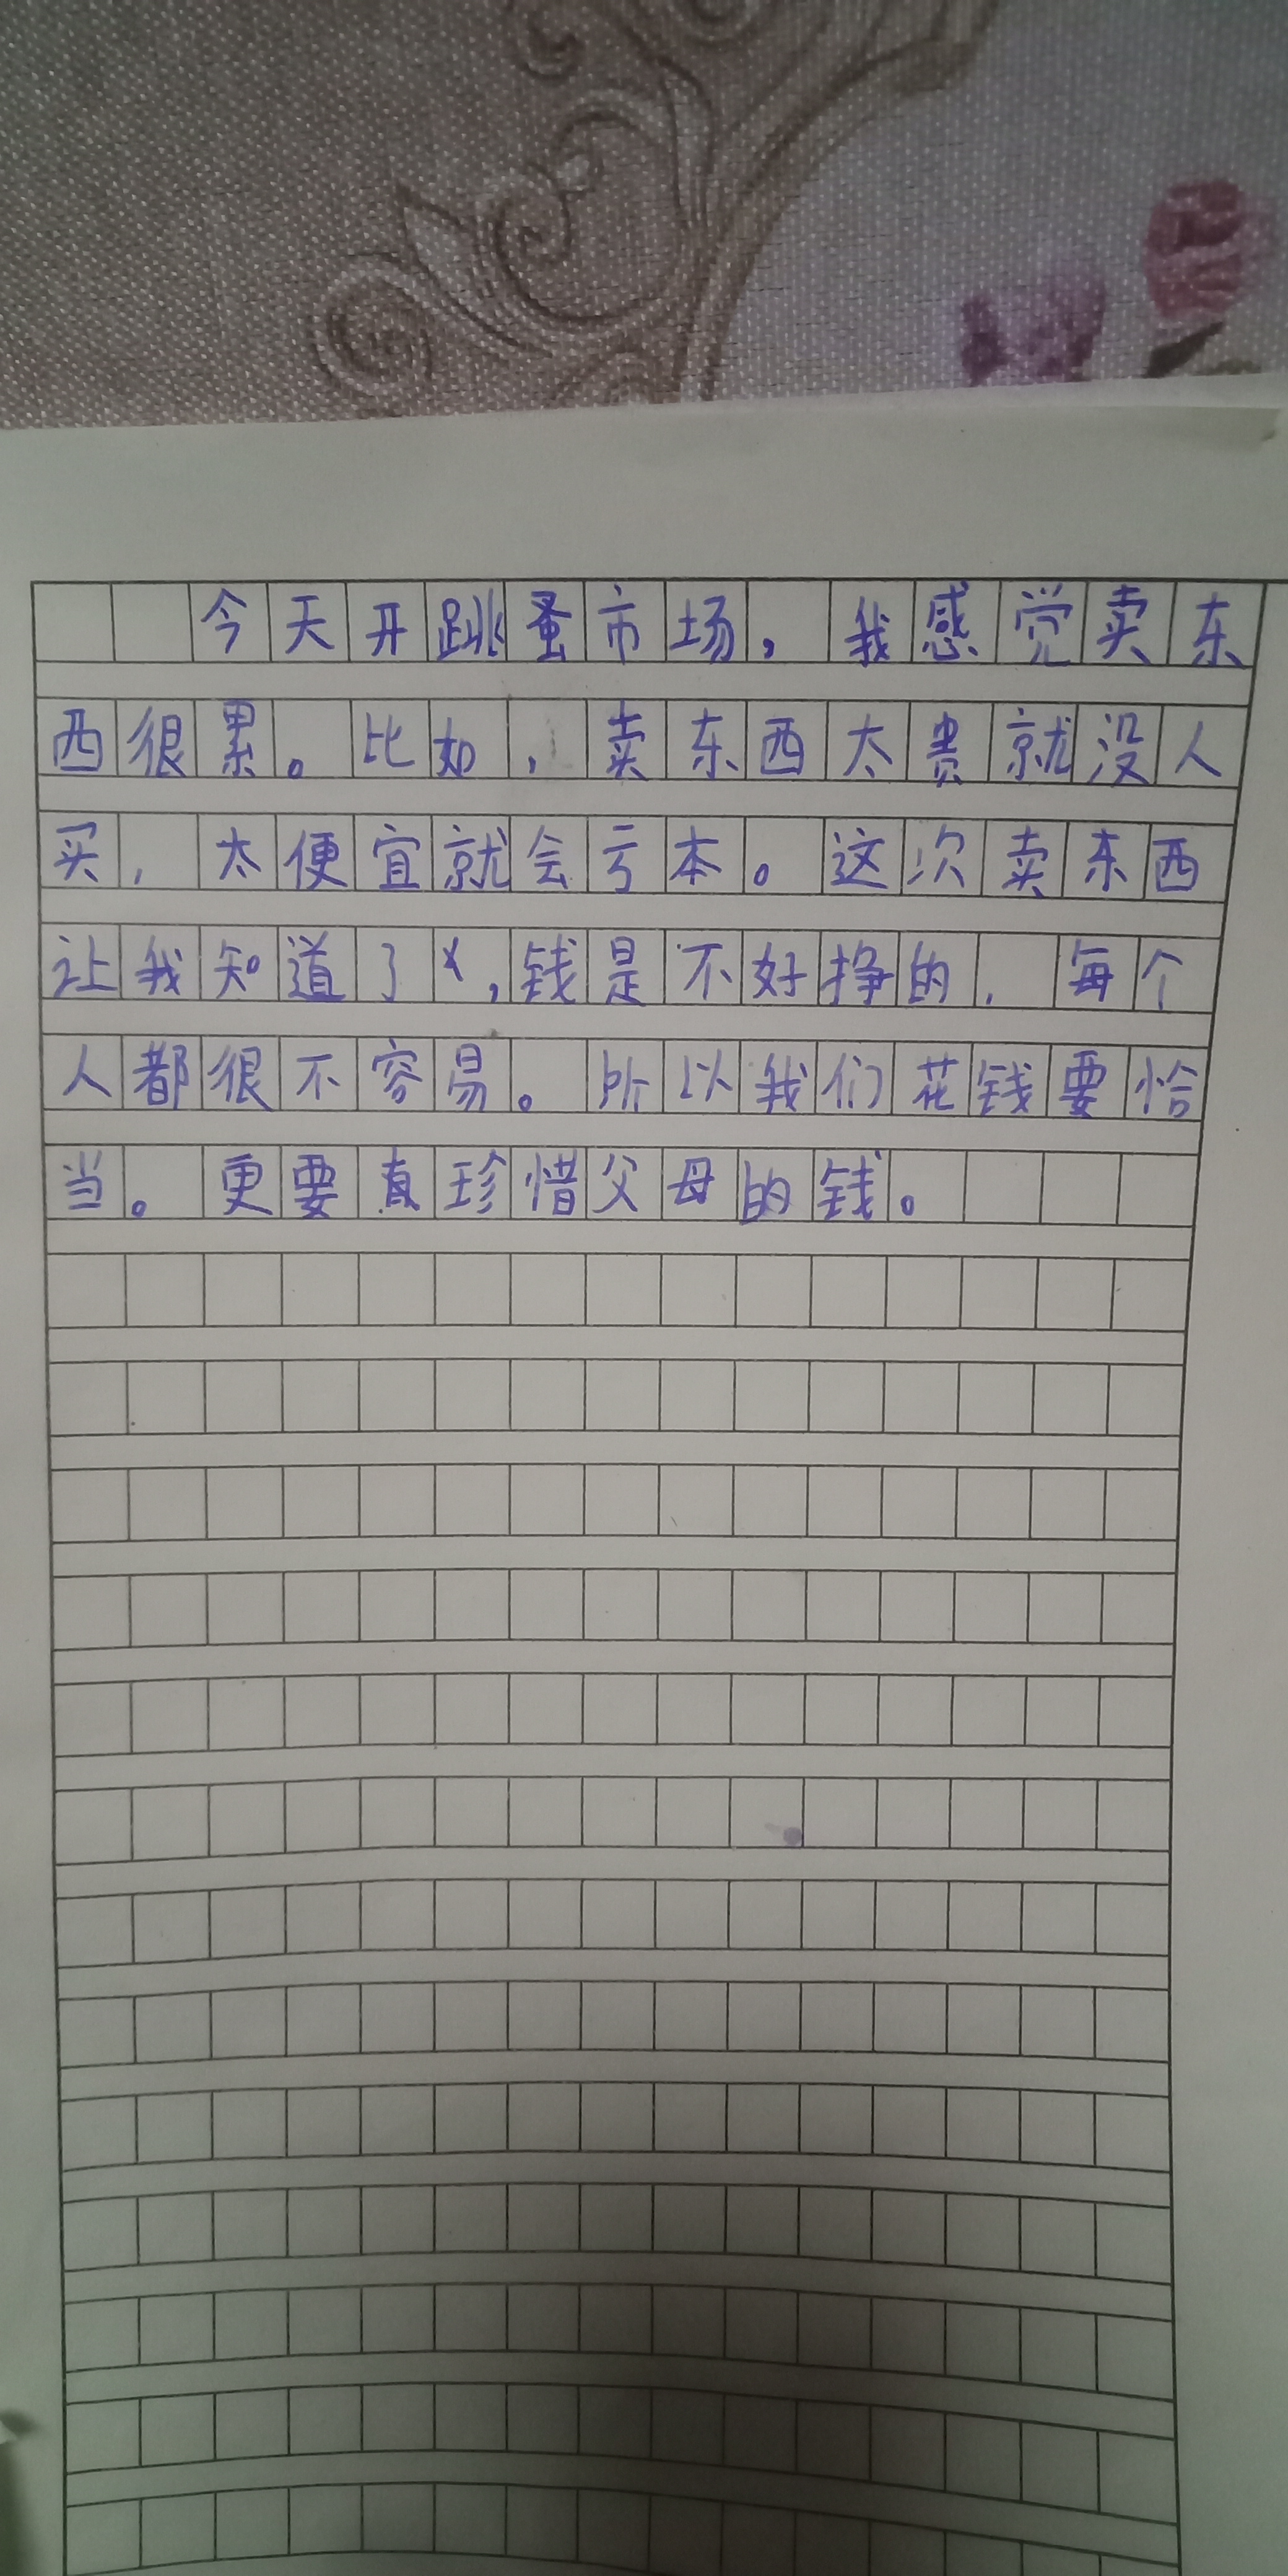 今天开跳蚤市场，我感觉卖东
西很累。比如，卖东西太贵就没人
买，太便宜就会亏本。这次卖东西
让我知道了，钱是不好挣的，每个
人都很不容易。所以我们花钱要恰
当。更要真珍惜父母的钱。